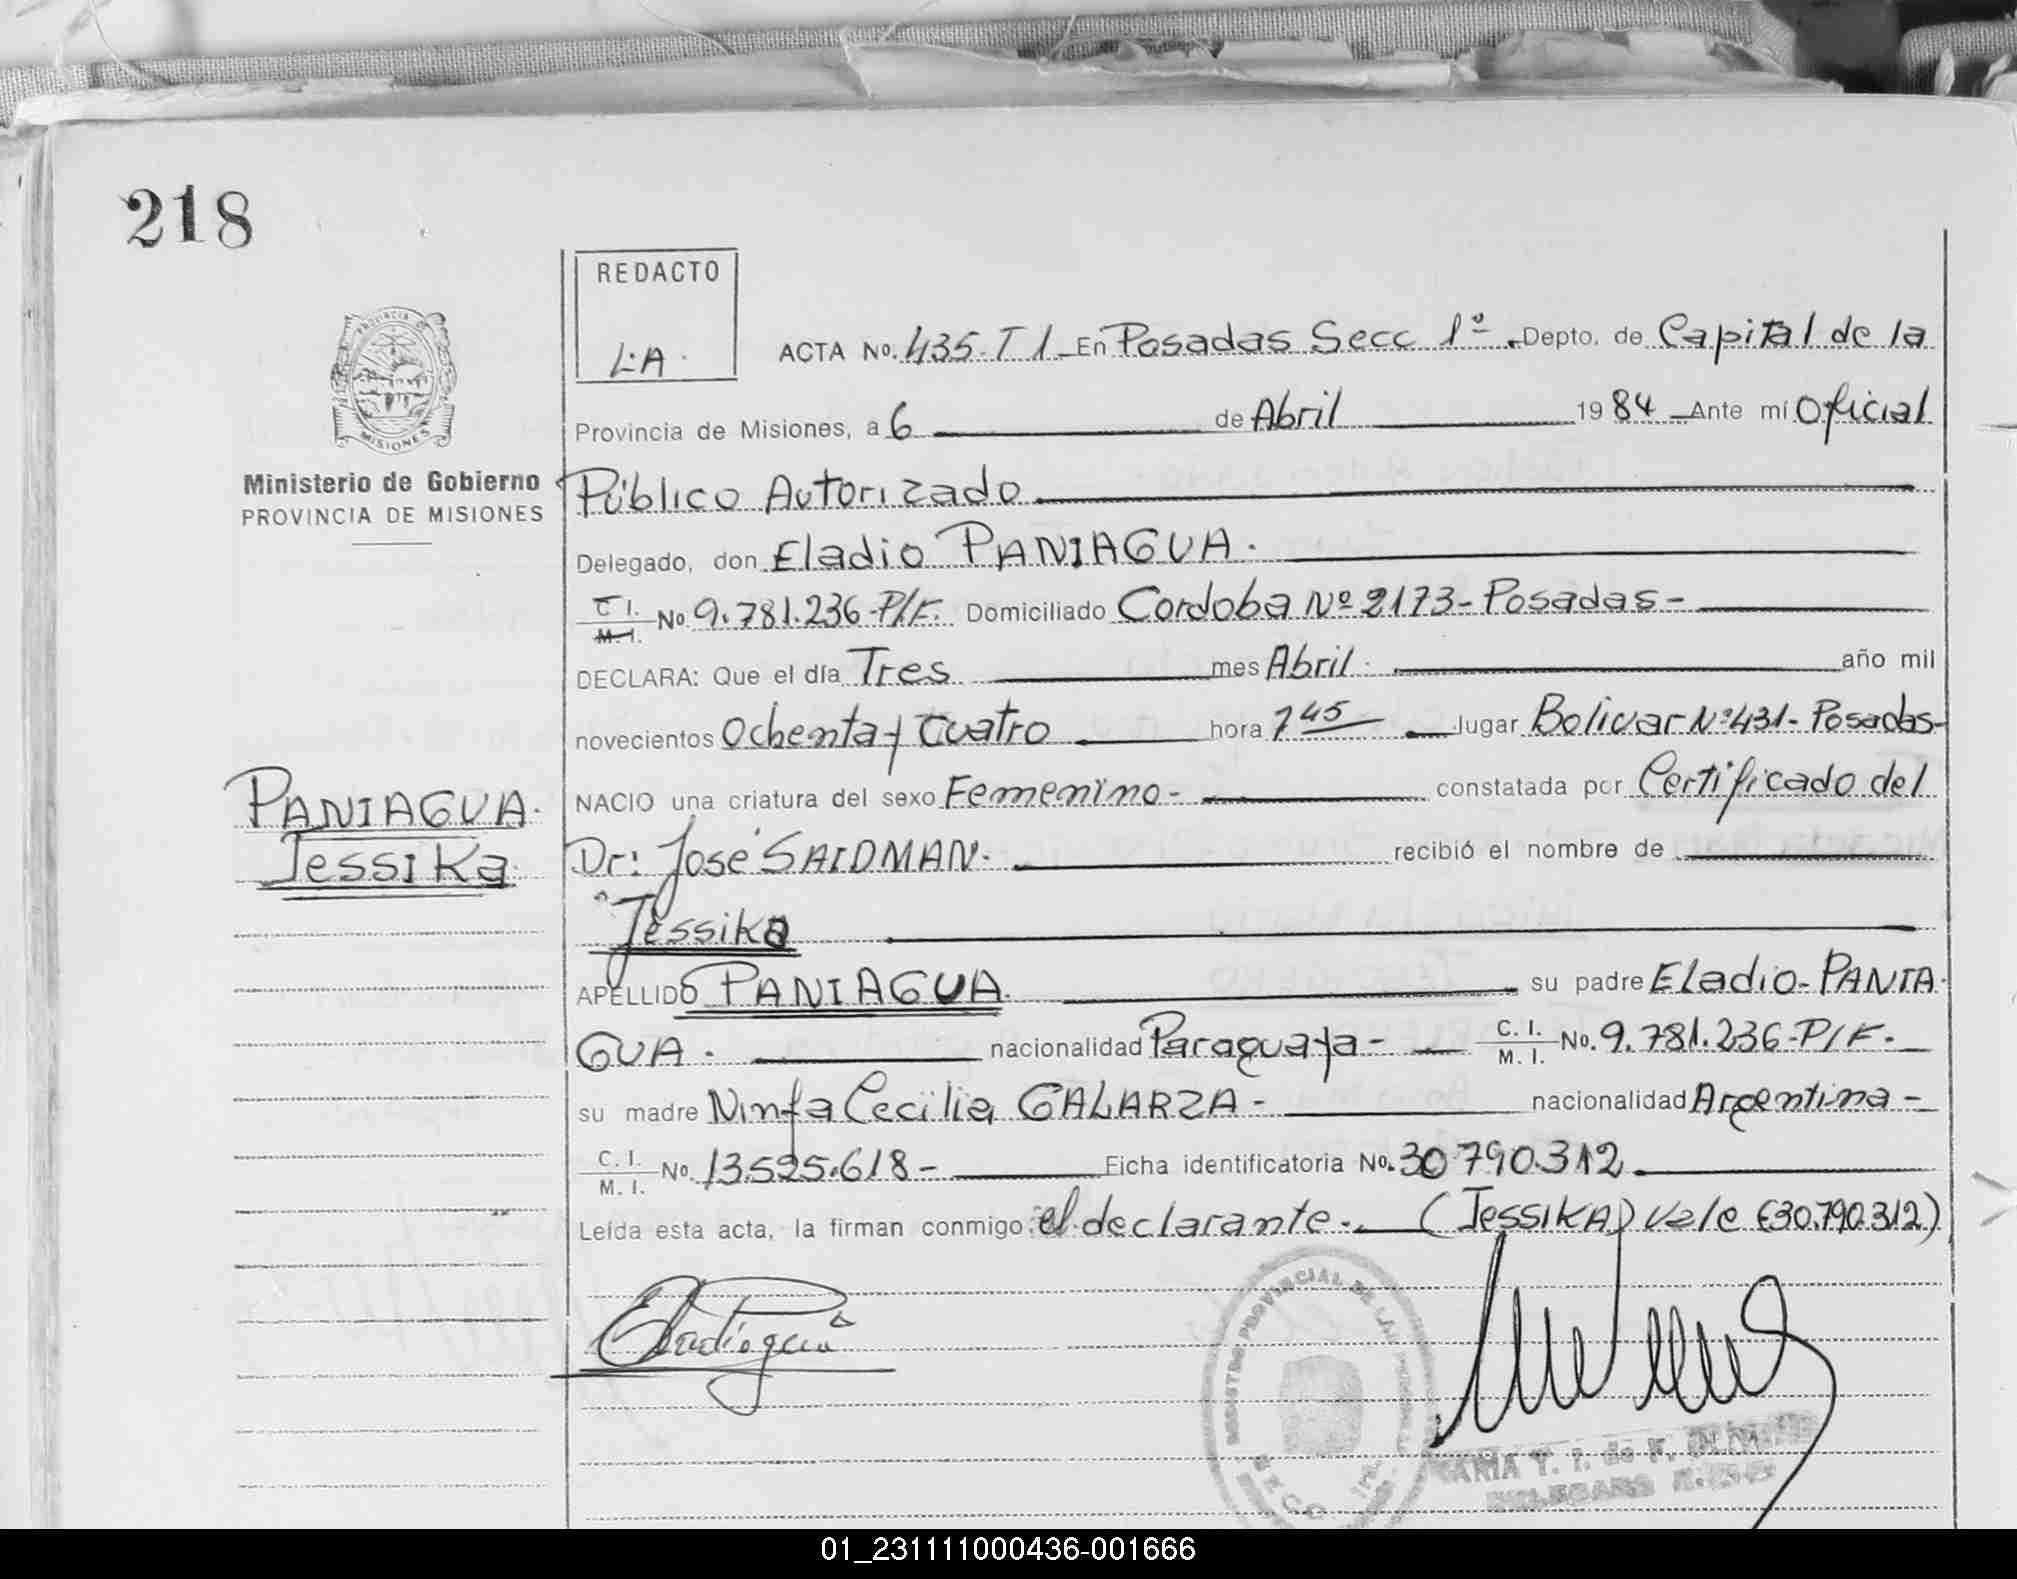 218
REDACTO
L.A.
PROVINCIA DE
MISIONES
Ministerio de Gobierno
PROVINCIA DE MISIONES
ACTA No. 435-T I - En Posadas Secc 1º -. Depto. de Capital de la
Provincia de Misiones, a 6 de Abril 1984 - Ante mí Oficial
Público Autorizado
Delegado, don Eladio PANIAGUA.
C I. M. I. No 9.781.236-P/F. Domiciliado Cordoba Nº 2173 - Posadas -
DECLARA: Que el día Tres mes Abril. año mil
novecientos Ochenta y Cuatro hora 7 45 lugar Bolivar Nº 431 - Posadas -
NACIO una criatura del sexo Femenino - constatada por Certificado del
PANIAGUA.
Jessika
Dr: José SAIDMAN. recibió el nombre de
Jessika
APELLIDO PANIAGUA. su padre Eladio - PANIA-
GUA. nacionalidad Paraguaya - C. I. M. I. No. 9.781.236-P/F. -
su madre Ninfa Cecilia GALARZA - nacionalidad Argentina -
C. I. M. I. No. 13.525.618 - Ficha identificatoria No. 30790.312
Leída esta acta, la firman conmigo: el declarante. - (JessiKA) Vale (30.790.312)
REGISTRO PROVINCIAL DE LAS
MARIA T. I. de F.
01_231111000436-001666